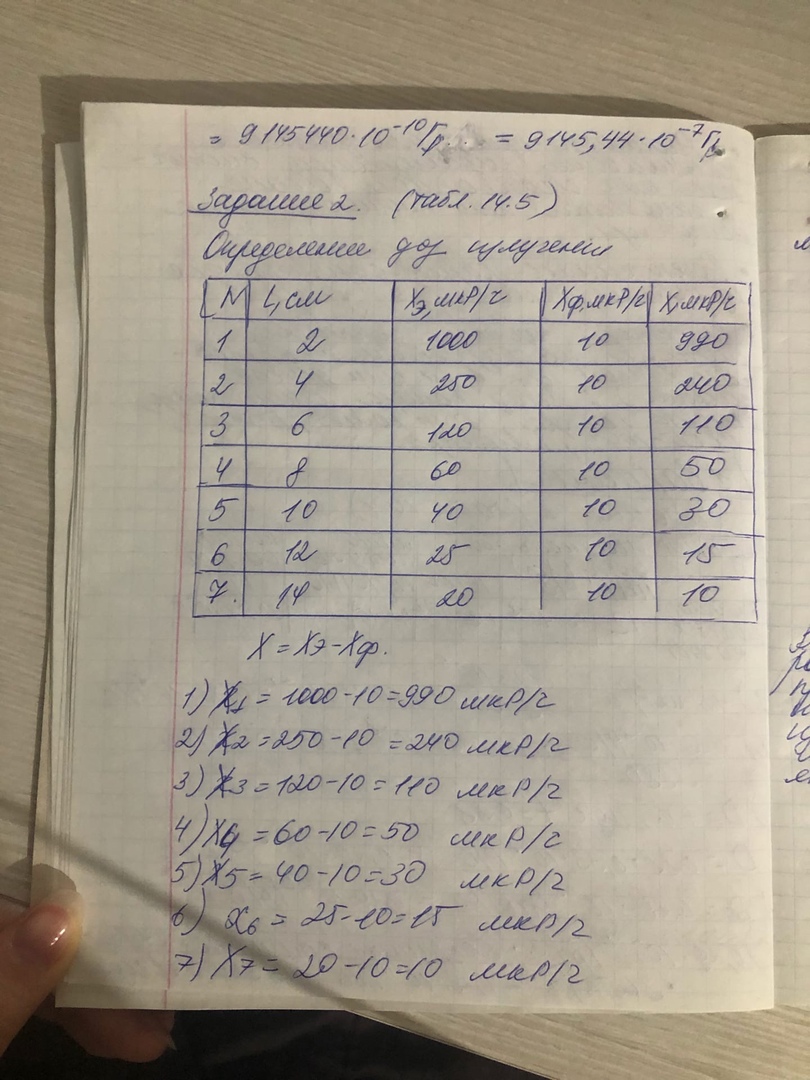 = 9145440·10⁻¹⁰Гр = 9145,44·10⁻⁷Гр
Задание 2. (табл. 14.5)
Определение доз излучения
N L, см Xэ, мкР/ч Xф, мкР/ч X, мкР/ч
1 2 1000 10 990
2 4 250 10 240
3 6 120 10 110
4 8 60 10 50
5 10 40 10 30
6 12 25 10 15
7. 14 20 10 10
X = Xэ - Xф.
1) X₁ = 1000 - 10 = 990 мкР/ч
2) X₂ = 250 - 10 = 240 мкР/ч
3) X₃ = 120 - 10 = 110 мкР/ч
4) X₄ = 60 - 10 = 50 мкР/ч
5) X₅ = 40 - 10 = 30 мкР/ч
6) x₆ = 25 - 10 = 15 мкР/ч
7) X₇ = 20 - 10 = 10 мкР/ч